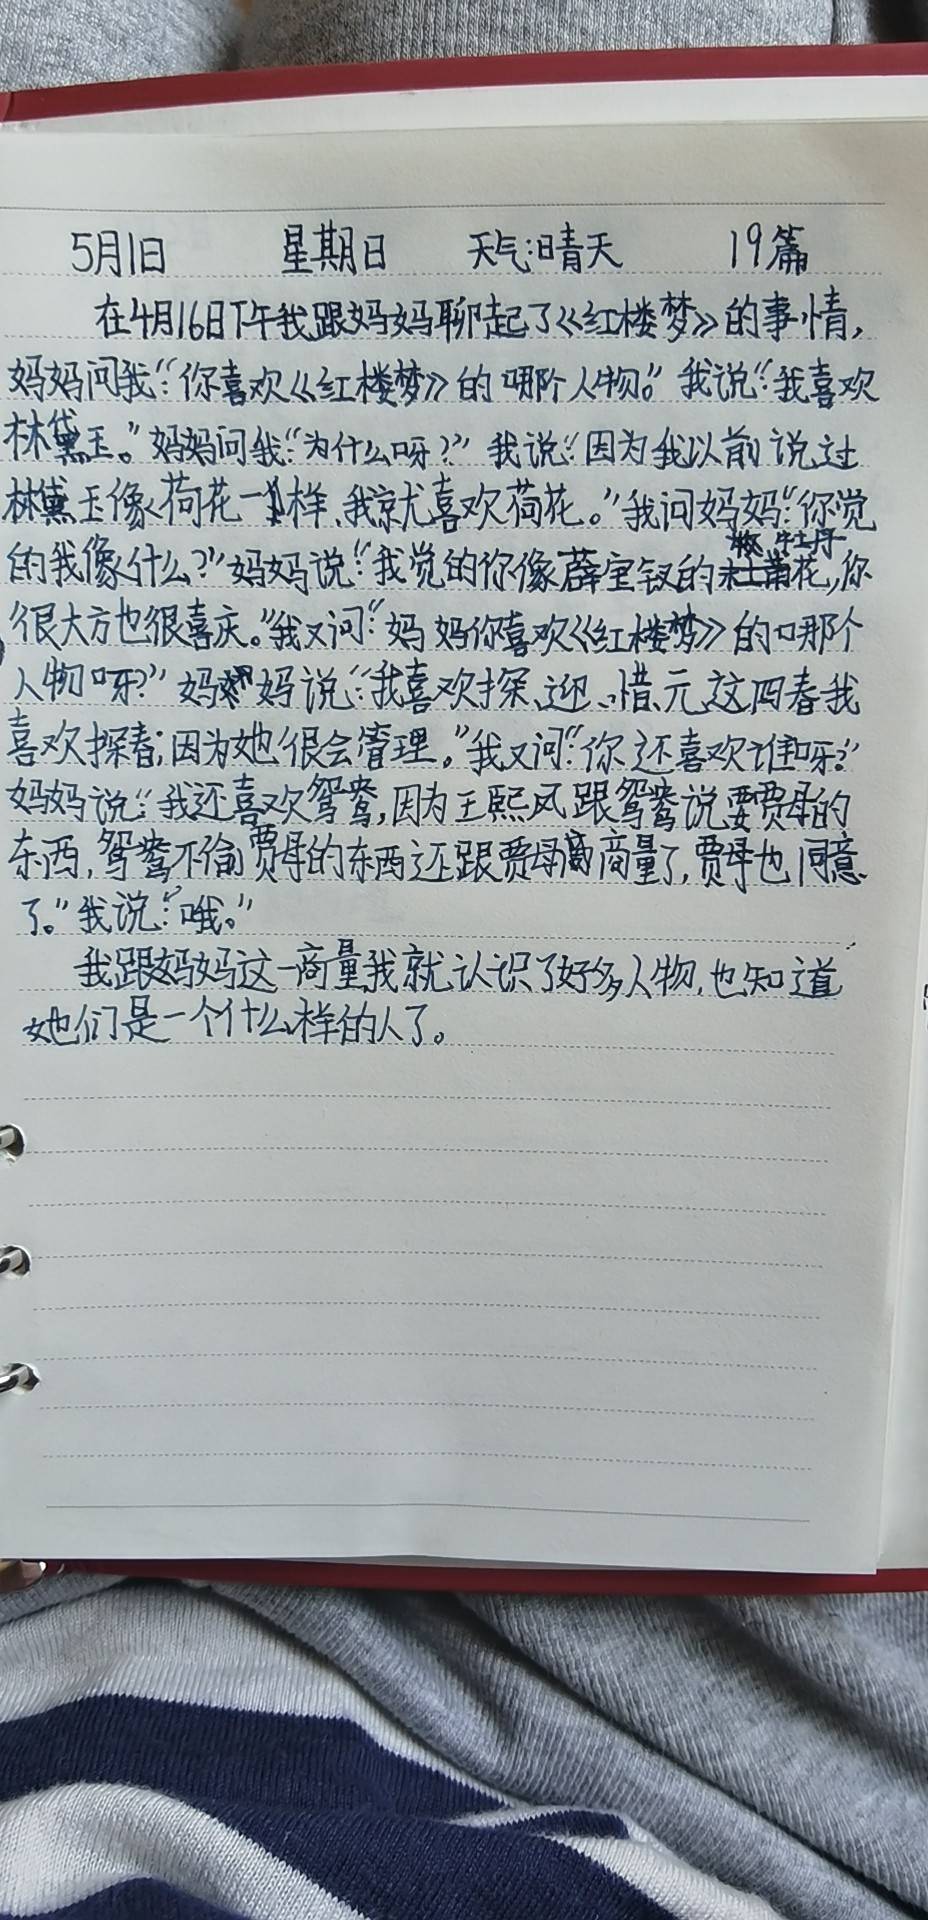 5月1日 星期日 天气:晴天 19篇
在4月16日下午我跟妈妈聊起了《红楼梦》的事情,
妈妈问我:“你喜欢《红楼梦》的哪个人物。”我说:“我喜欢
林黛玉。”妈妈问我:“为什么呀?”我说:“因为我以前说过
林黛玉像荷花一样、我就喜欢荷花。”我问妈妈:“你觉
牡丹
的我像什么?”妈妈说:“我觉的你像薛宝钗的花,你
很大方也很喜庆。”我又问:“妈妈你喜欢《红楼梦》的哪个
人物呀?”妈妈说:“我喜欢探、迎、惜、元这四春我
喜欢探春;因为她很会管理。”我又问:“你还喜欢谁呀?”
妈妈说:“我还喜欢鸳鸯,因为王熙凤跟鸳鸯说要贾母的
东西,鸳鸯不偷贾母的东西还跟贾母商量了,贾母也同意
了。”我说:“哦。”
我跟妈妈这一商量我就认识了好多人物,也知道
她们是一个什么样的人了。